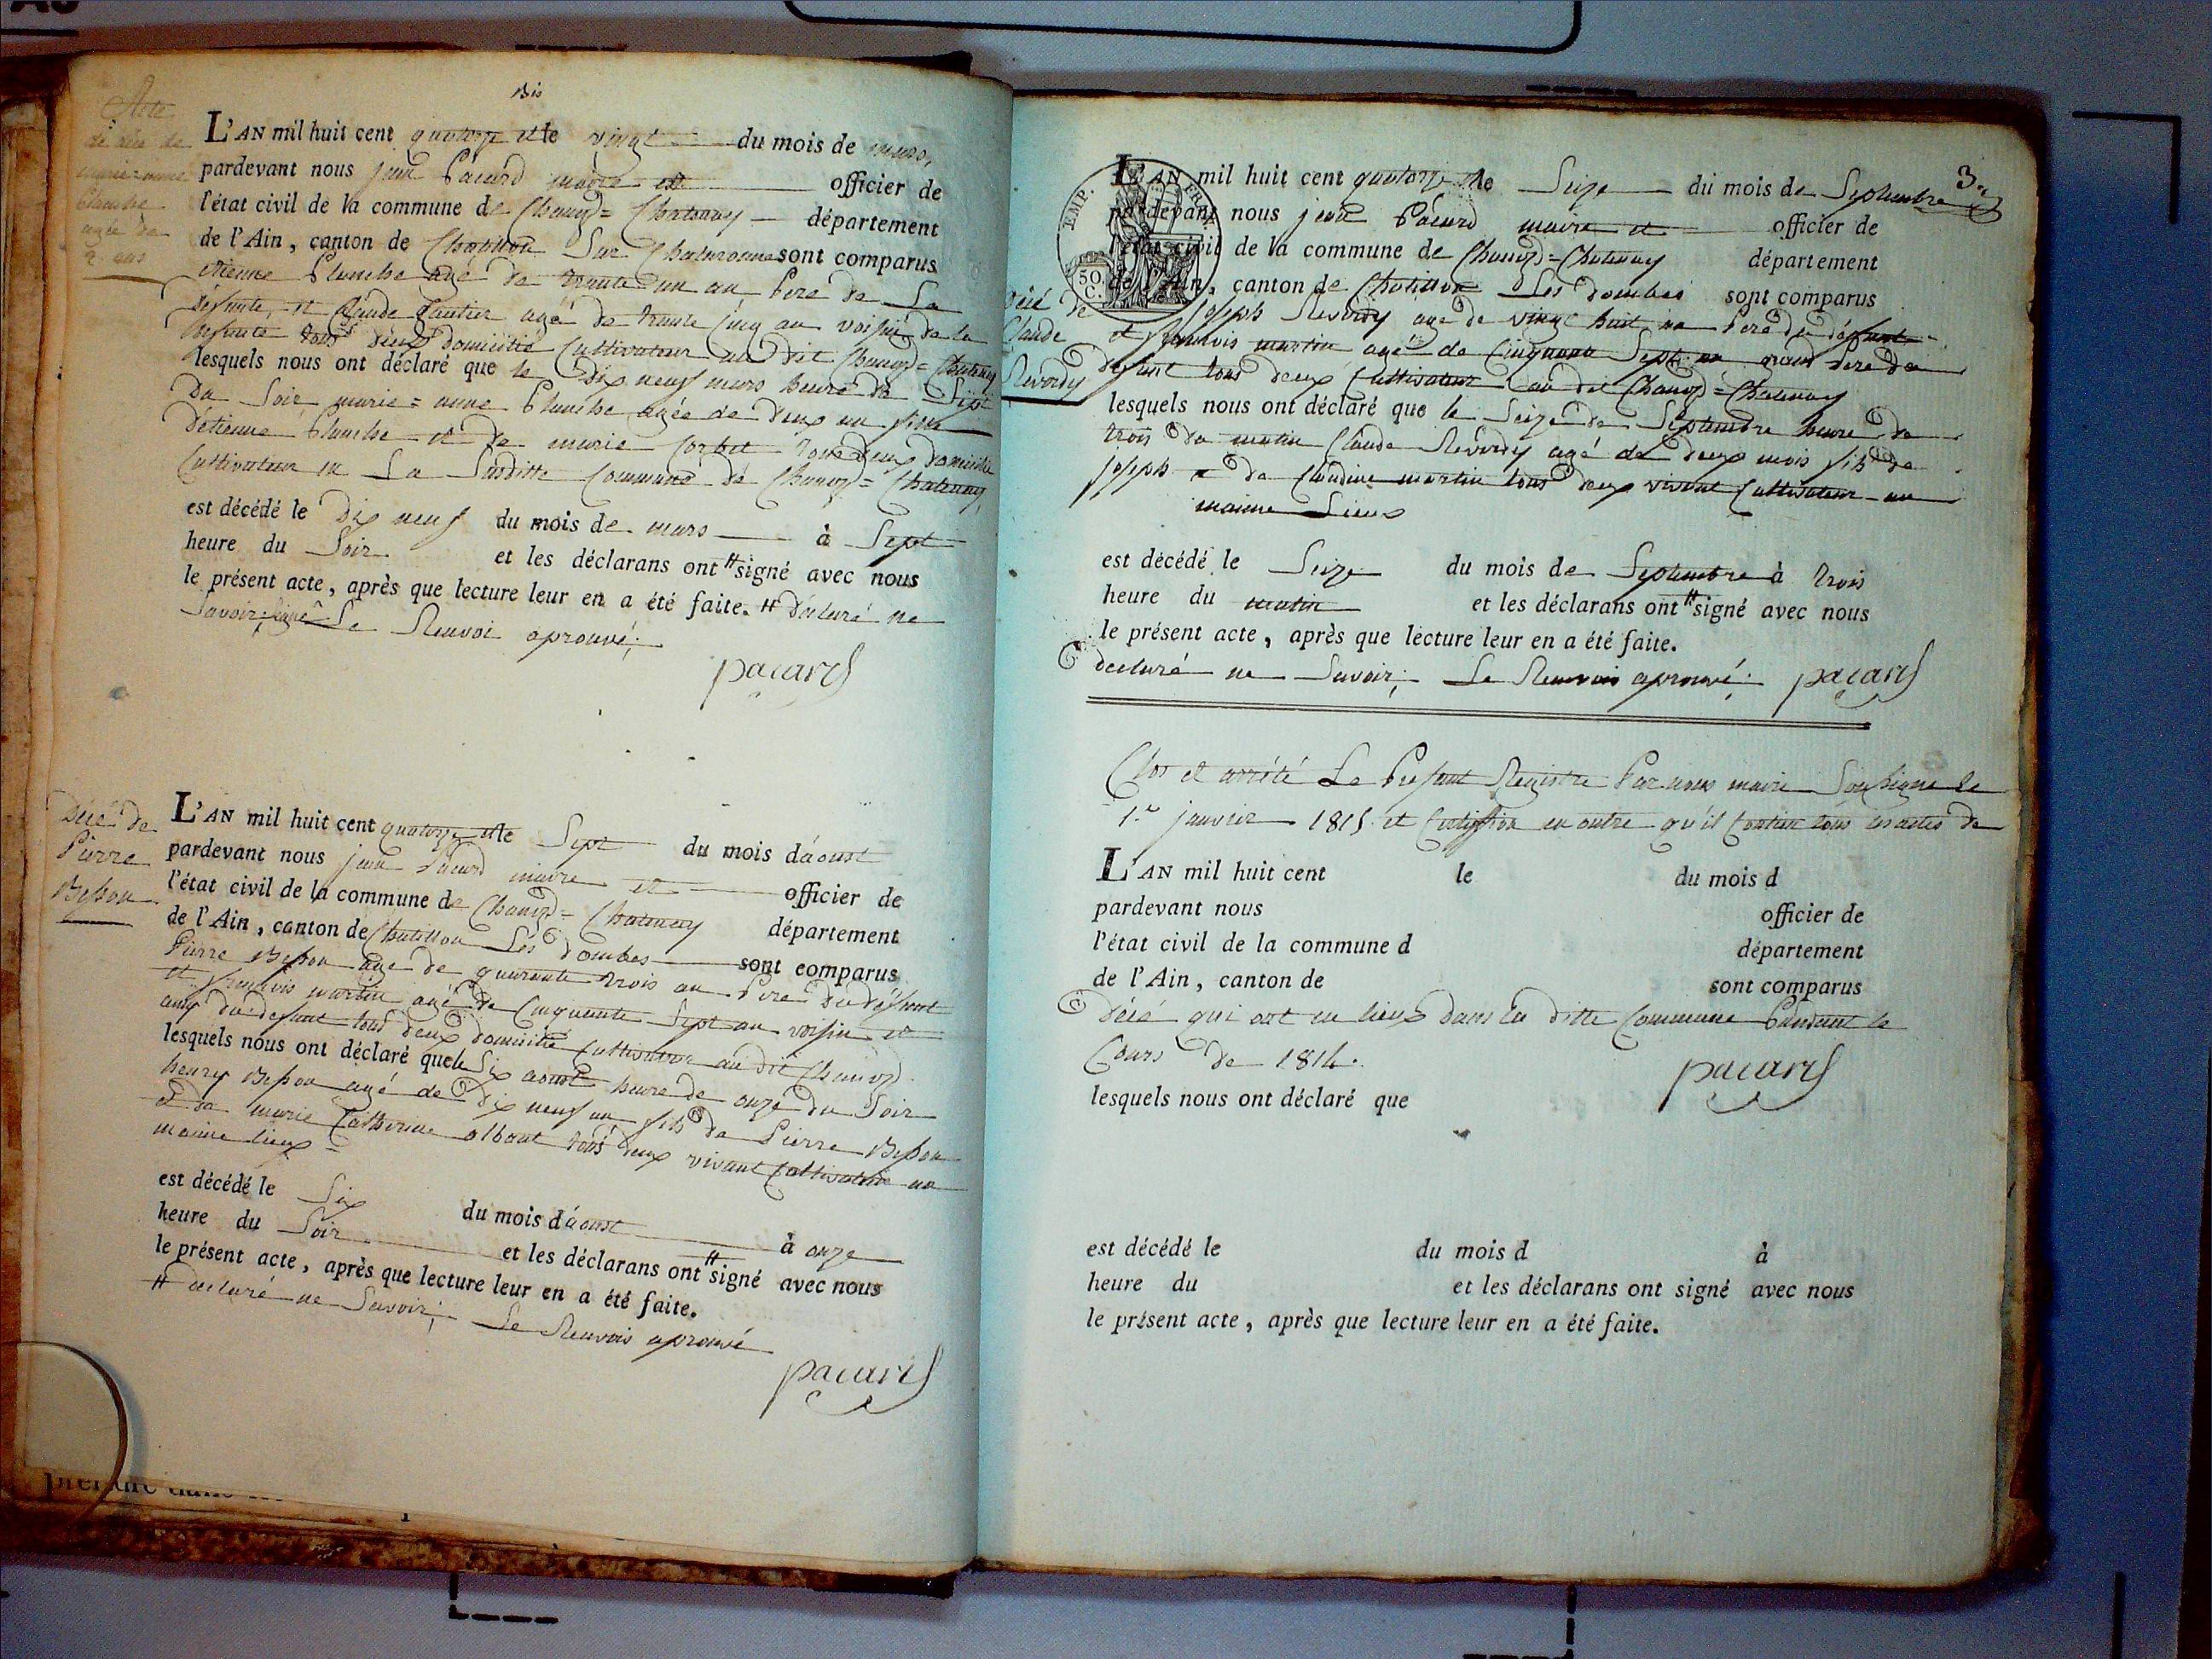 Bis
Acte
de décé de
marie=anne
Planche
agée de
2 ans
L'AN mil huit cent quatorze et le vingt du mois de mars,
pardevant nous jean Pacard maire et officier de
l'état civil de la commune de Chaneyd=Chatenay département
de l'Ain, canton de Chatillon Sur Chalaronne sont comparus
étienne Planche agé de trante un an Pere de La
défunte, et Claude Gautier agé de trante cinq an voisin de la
defunte tous deux domicilié Cultivateur au dit =Chatenay
lesquels nous ont déclaré que le Dix neuf mars heure de Sept
Du Soir marie=anne Planche agée de deux an fille
D'étienne Planche et de marie Corbet tous deux domicilié
Cultivateur en La Susditte Commune de =Chatenay
est décédé le Dix neuf du mois de mars à Sept
heure du Soir et les déclarans ont # signé avec nous
le présent acte, après que lecture leur en a été faite. # déclaré ne
Savoir signé Le Renvoi aprouvé;
pacard
Décé de
Pierre
Besson
L'AN mil huit cent quatorze et le Sept du mois d'aoust
pardevant nous jean Pacard maire et officier de
l'état civil de la commune de =Chatenay département
de l'Ain, canton de Chatillon Les Dombes sont comparus
Pierre Besson age de quarante trois an Pere du défunt
et francois martin agé de Cinquante Sept an voisin et
amy du defunt tous deux domicilié Cultivateur au dit
lesquels nous ont déclaré que le Six aoust heure de onze du Soir
henry Besson agé de Dix neuf an fils de Pierre Besson
et de marie Catherine albant tous deux vivant Cultivateur au
maime lieux =
est décédé le Six du mois d'aoust à onze
heure du Soir et les déclarans ont # signé avec nous
le présent acte, après que lecture leur en a été faite.
# declaré ne Savoir; Le Renvois aprouvé
pacard
3
TEMP. FR.
50 C.
Décé de
Claude
Revordy
L'AN mil huit cent quatorze et le Seize du mois de Septembre
pardevant nous jean Pacard maire et officier de
l'état civil de la commune de =Chatenay département
de l'Ain, canton de Chatillon Les Dombes sont comparus
joseph Revordy age de vingt huit an Pere du défunt
et francois martin agé de Cinquante Sept an grand Pere du
defunt tous deux Cultivateur au dit =Chatenay
lesquels nous ont déclaré que le Seize de Septembre heure de
trois du matin Claude Revordy agé de deux mois fils de
joseph e de Claudine martin tous deux vivant Cultivateur au
maime Lieux
est décédé le Seize du mois de Septembre à trois
heure du matin et les déclarans ont # signé avec nous
le présent acte, après que lecture leur en a été faite.
declaré ne Savoir; Le Renvois aprouvé; pacard
Clos et arrété Le Present Registre Par nous maire Sousigne le
1.er janvier 1815 et Certiffion en outre qu'il Contien tous les actes de
L'AN mil huit cent le du mois d
pardevant nous officier de
l'état civil de la commune d département
de l'Ain, canton de sont comparus
Décé qui ont eu lieux dans la ditte Commune Pendant le
Cours de 1814.
pacard
lesquels nous ont déclaré que
est décédé le du mois d à
heure du et les déclarans ont signé avec nous
le présent acte, après que lecture leur en a été faite.